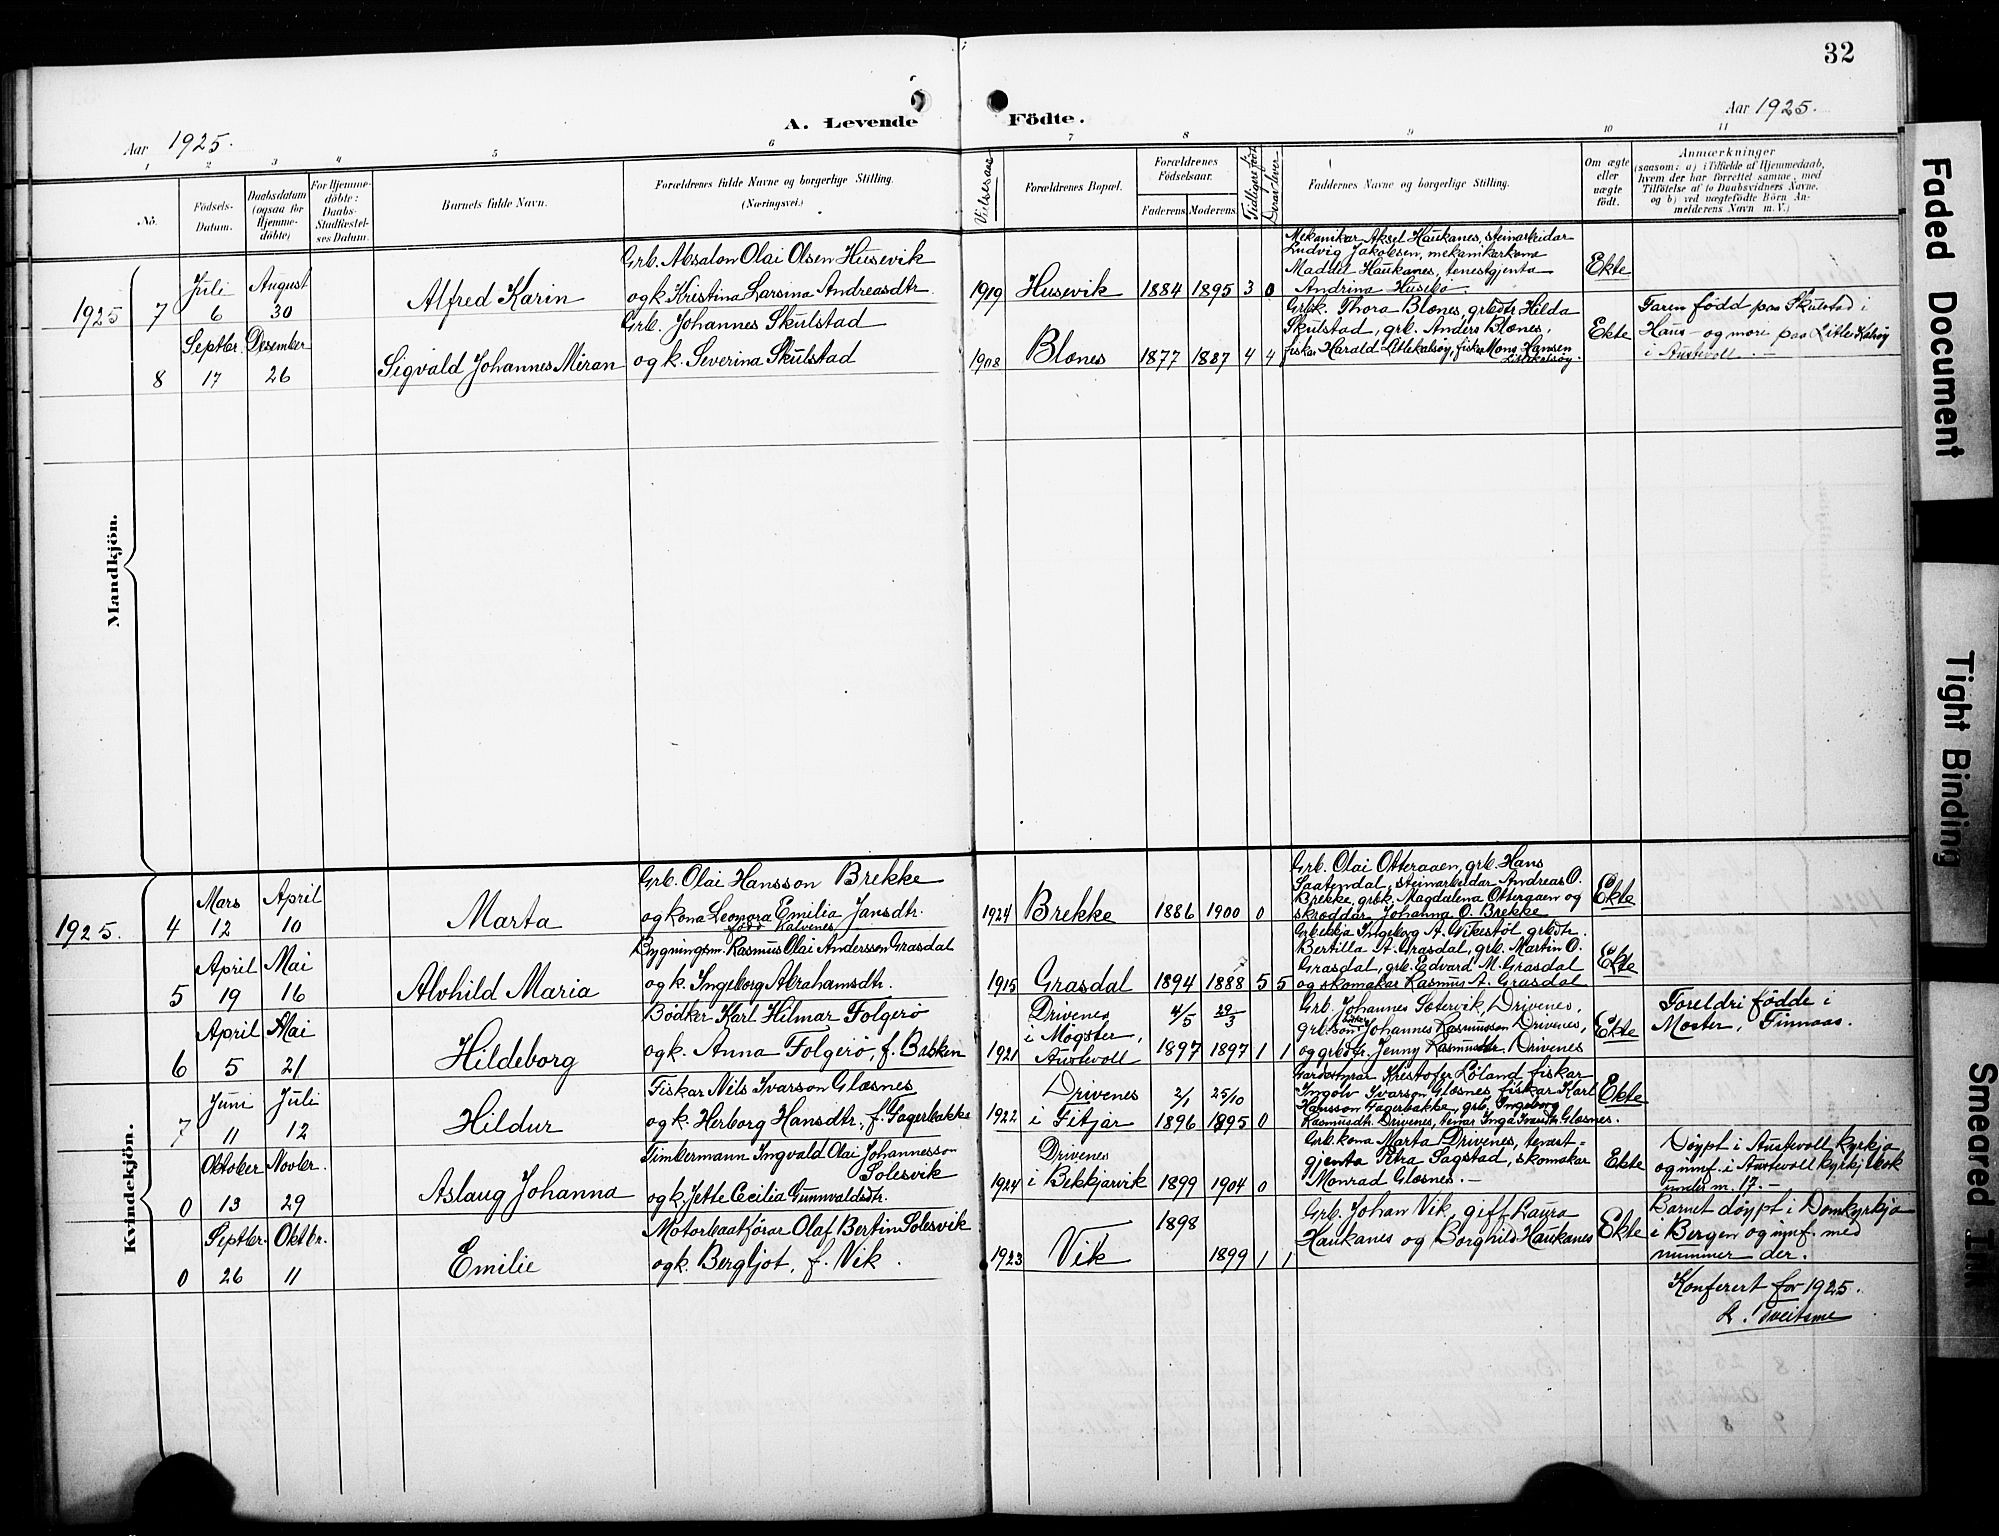 32
A. Levende Födte.
Aar 1925.
Aar 1925.
1 2 3 4 5 6 7 8 9 10 11
No.
Födsels-
Datum.
Daabsdatum
(ogsaa for
Hjemme-
döbte)
For Hjemme-
döbte:
Daabs-
Stadfæstel-
ses Datum.
Barnets fulde Navn.
Forældrenes fulde Navne og borgerlige Stilling.
(Næringsvei.)
Vielsesaar
Forældrenes Bopæl.
Forældrenes
Födselsaar.
Faderens Moderens
Faddernes Navne og borgerlige Stilling.
Om ægte
eller
uægte
født.
Anmærkninger
(saasom: a) i Tilfælde af Hjemmedaab,
hvem der har forrettet samme, med
Tilföielse af to Daabsvidners Navne,
og b) ved uægtefödte Börn An-
melderens Navn m. V.)
Mandkjön.
1925 7
Juli
6
August
30
Alfred Karin
Grb. Absalon Olai Olsen Husevik
og k. Kristina Larsina Andreasdtr.
1919 Husevik 1884 1895 3 0
Mekanikar Aksel Haukanes, steinarbeidar
Ludvig Jakobsen, mekanikarkona
Maddel Haukanes, tenestgjenta
Andrina Husebø.
Ekte
8
Septbr.
17
Desember
26
Sigvald Johannes Miran
Grb. Johannes Skulstad
og k. Severina Skulstad
1908 Blones 1877 1887 4 4
Grbk. Thora Blones, grbdtr Hilda
Skulstad, grb. Anders Blones,
fiskar Harald Litlekalsøy, fiskar Mons Hansen
Litlekalsøy.
Ekte
Faren fødd paa Skulstad i
Haus – og mori paa Litle Kalsøy
i Austevoll. –
Kvindekjön.
1925. 4
Mars
12
April
10
Marta
Grb. Olai Hansson Brekke
og kona Leonora Emilia Jansdtr.
fødd Kalvenes
1924 Brekke 1886 1900 0
Grb. Olai Otteraaen, grb. Hans
Saatendal, steinarbeidar Andreas O.
Brekke, grbk. Magdalena Otteraaen og
skræddar Johanna O. Brekke
Ekte
5
April
19
Mai
16
Alvhild Maria
Bygningsm. Rasmus Olai Andersson Grasdal
og k. Ingeborg Abrahamsdtr.
1915 Grasdal 1894 1888 5 5
Grbekkja Ingeborg A. Vikestøl grbdtr.
Bertilla A. Grasdal, grb. Martin O.
Grasdal, grb. Edvard M. Grasdal
og skomakar Rasmus A. Grasdal
Ekte
6
April
5
Mai
21
Hildeborg
Bødker Karl Hilmar Folgerø
og k. Anna Folgerø, f. Bakken
1921
Drivenes
i Møgster,
Austevoll
4/5
1897
29/3
1897 1 1
Grb. Johannes Sætervik, Drivenes,
grbson Johannes Rasmusson Drivenes,
og grbdtr. Jenny Rasmusdtr. Drivenes
Ekte
Foreldri fødde i
Moster, Finnaas.
7
Juni
11
Juli
12
Hildur
Fiskar Nils Ivarson Glæsnes
og k. Herborg Hansdtr., f. Fagerbakke
1922
Drivenes
i Fitjar
2/1
1896
25/10
1895 0
Gardbrukar Kristofer Løland fiskar
Ingolv Ivarson Glæsnes, fiskar Karl
Hansson Fagerbakke, grb. Ingeborg
Rasmusdtr. Drivenes, tenar Inga Ivarsdtr. Glæsnes.
Ekte
0
Oktober
13
Novbr.
29
Aslaug Johanna
Timbermann Ingvald Olai Johannesson
Solesvik
og k. Jette Cecilia Gunnvaldsdtr.
1924
Drivenes
i Bekkjarvik 1899 1904 0
Grb. kona Marta Drivenes, tenest-
gjenta Petra Sagstad, skomakar
Monrad Glæsnes. –
Ekte
Døypt i Austevoll kyrkja
og innf. i Austevoll kyrkjebok
under nr. 17. –
0
Septbr.
26
Oktbr.
11
Emilie
Motorbaatførar Olaf Bertin Solesvik
og k. Bergljot, f. Vik.
1923 Vik
1898
1899 1 1
Grb. Johan Vik, gift Laura
Haukanes og Borghild Haukanes
Ekte
Barnet døypt i Domkyrkja
i Bergen og innf. med
nummer der.
Konferert for 1925.
R. Tveitame
Faded Document
Tight Binding
Smeared Ink